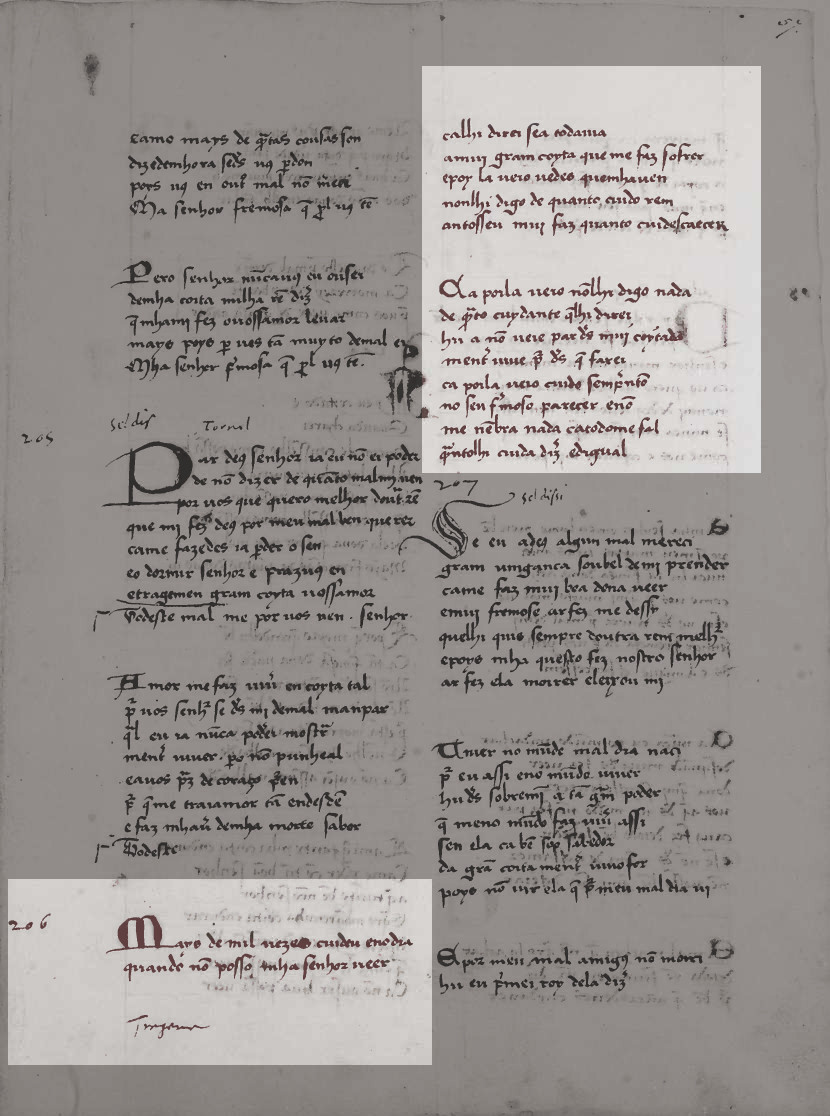 Camo mays de q̃tas cousas son
dizedemhora sẽds uꝯ ꝑdon
poys uꝯ en out̃ mal nõ m̃eci
Mha senhor fremosa q̃ ꝑl uꝯ tẽ
Pero senhor nũcauꝯ eu ousei
demha coita milha rẽ diz̃
q̃mhami fez ouossamor leuar
mays poys ꝑ ues tã muyto demal ey
Mha senhor f̃mosa q̃ ꝑl uꝯ tẽ.
205
Sel dis Tornel
Par deꝯ senhor ia eu nõ ei poder
de nõ dizer de quãto malmhuen
por uos que quero melhor dout̃ rẽ
que mi fez deꝯ por meu mal ben querer
came fazedes ia ꝑder o sen
eo dormir senhor e prazuꝯ en
etragemen gram coyta uossamor
Todeste mal me por uos uen . senhor
Amor me faz uiu̾ en coyta tal
p̃ uos senh̃ se ds̃ mi demal manpar
q̃l eu ia nũca pod̾ei mostr̃
ment̃ uiuer . p̃o nõ punheal
eauos p̃z de coraço p̃en
p̃ q̃ me traiamor tã endesdẽ
e faz mhau̾ demha morte sabor
Todeste
206
Mays de mil uezes cuideu enodia
quando nõ posso mha senhor ueer
Tregeure
calhi direi sea todauia
amui gram coyta que me faz sofrer
epoy la ueio uedes quemhauen
nonlhi digo de quanto cuido rem
antosseu mui faz quanto cuidescaecer
Ca poila ueio nõlhi digo nada
de q̃to cuydante q̃lhi direi
hu a nõ ueie par ds̃ mui coytado
ment̃ uiue p̃ ds̃ q̃ farei
ca poila ueio cuido semp̃ntõ
no seu f̃moso parecer enõ
me nẽbra nada caeodome fal
q̃ntolhi cuida diz̃ edigual
207
Sel disi
Se eu adeꝯ algun mal mereci
gram uingança soubel demi prender
came faz mui bea dona ueer
emui fremose ar fez me dessi
quelhi quis sempre doutra rem melh̃
epoys mha questo fez nostro senhor
ar fez ela moirer eleixou mi
Uiuer no mũde mal dia naci
p̃ eu assi eno mũdo uiuer
hu ds̃ sobremĩ a tã gm̃ poder
q̃ meno mũdo faz uiu̾ assi
sen ela ca bẽ sõo sabedor
da grã coita ment̃ uiuo for
poys nõ uir ela q̃ p̃ meu mal dia ui
E por meu mal amigꝯ nõ moiri
hu eu p̃mei toy dela diz̃